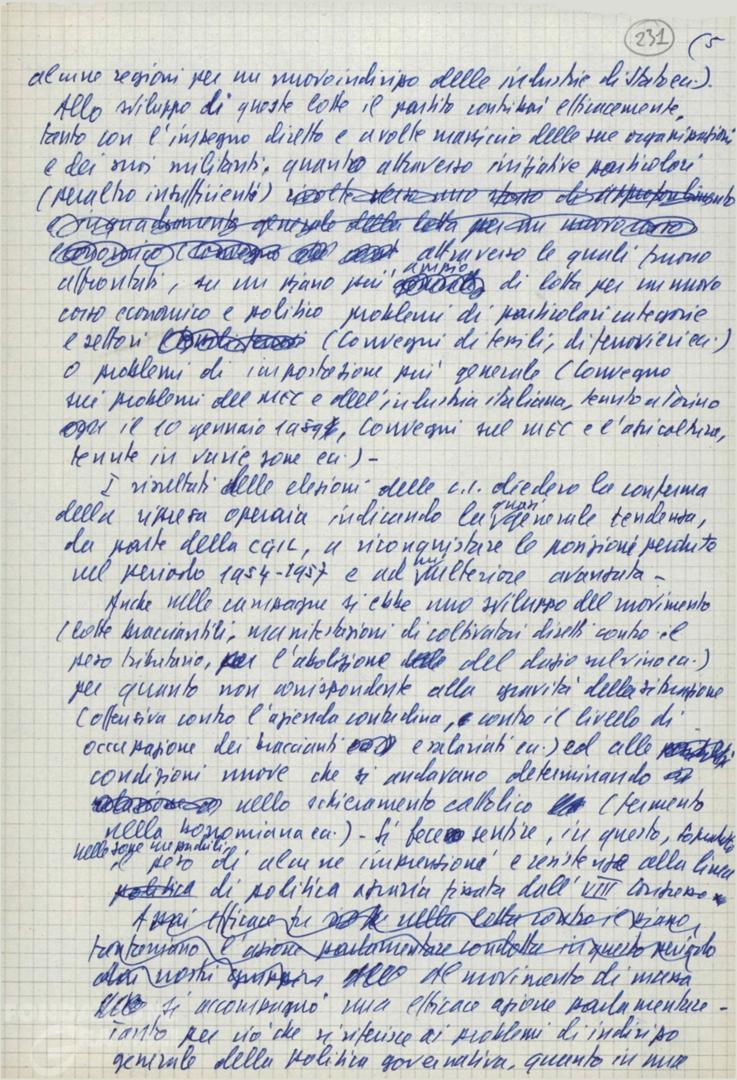 231 (5
alcune regioni per un nuovo indirizzo delle industrie di Stato ecc.).
Allo sviluppo di queste lotte il partito contribuì efficacemente,
tanto con l'impegno diretto e a volte massiccio delle sue organizzazioni
e dei suoi militanti, quanto attraverso iniziative particolari
(peraltro insufficienti) rivolte verso uno sforzo di approfondimento
e inquadramento generale della lotta per un nuovo corso
economico (Convegno attraverso le quali furono
affrontati, su un piano più ampio di lotta per un nuovo
corso economico e politico problemi di particolari categorie
e settori (Convegni di tessili, di ferrovieri ecc.)
o problemi di impostazione più generale (Convegno
sui problemi del MEC e dell'industria italiana, tenuto a Torino
il 10 gennaio 1959, Convegni sul MEC e l'agricoltura,
tenute in varie zone ecc.) -
I risultati delle elezioni delle c.i. diedero la conferma
della ripresa operaia indicando la quasi generale tendenza,
da parte della CGIL, a riconquistare le posizioni perdute
nel periodo 1954-1957 e ad un'ulteriore avanzata -
Anche nelle campagne si ebbe uno sviluppo del movimento
(lotte bracciantili, manifestazioni di coltivatori diretti contro il
peso tributario, per l'abolizione del dazio sul vino ecc.)
per quanto non corrispondente alla gravità della situazione
(offensiva contro l'azienda contadina, e contro il livello di
occupazione dei braccianti e salariati ecc.) ed alle
condizioni nuove che si andavano determinando
nello schieramento cattolico (fermento
nella bonomiana ecc.) - Si fece sentire, in questo, soprattutto
nelle zone mezzadrili
il peso di alcune imprecisioni e resistenze alla linea
politica di politica agraria fissata dall'VIII Congresso
Assai efficace fu nella lotta contro il
l'azione parlamentare condotta in questo periodo
dai nostri gruppi Al movimento di massa
si accompagnò una efficace azione parlamentare -
Tanto per ciò che si riferisce ai problemi di indirizzo
generale della politica governativa, quanto in una